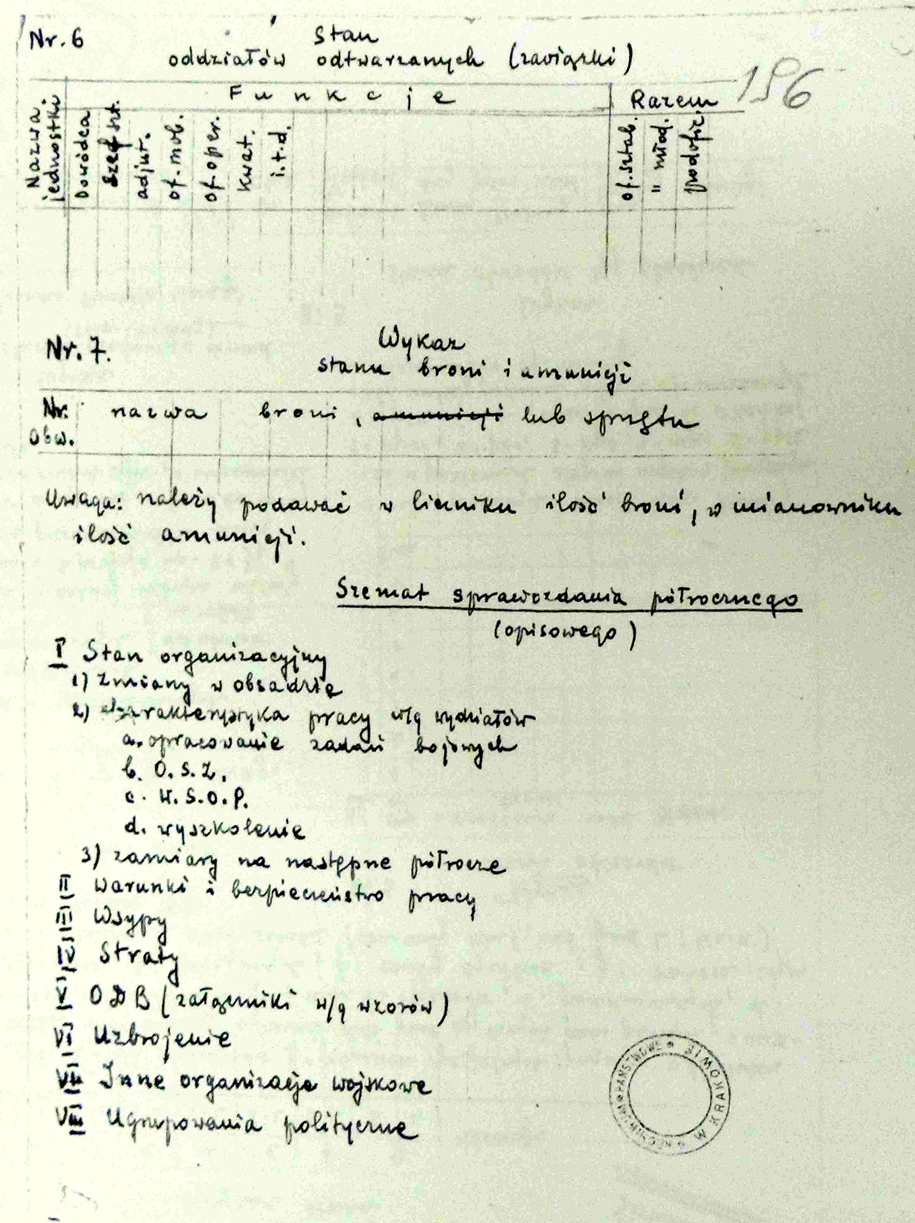 Nr. 6
Stan
oddziałów odtwarzanych (zawiązki)
196
Nazwa jednostki
Funkcje
Razem
Dowódca
Szef szt.
adjut.
of. mob.
of. oper.
Kwat.
i.t.d.
of. sztab.
" młod.
podofic.
Nr. 7.
Wykaz
stanu broni i amunicji
Nr. obw.
nazwa broni, amunicji lub sprzętu
Uwaga: należy podawać w liczniku ilość broni, w mianowniku
ilość amunicji.
Szemat sprawozdania półrocznego
(opisowego)
I Stan organizacyjny
1) Zmiany w obsadzie
2) charakterystyka pracy w/g wydziałów
a. opracowanie zadań bojowych
b. O.S.Z.
c. W.S.O.P.
d. wyszkolenie
3) zamiary na następne półrocze
II Warunki i bezpieczeństwo pracy
III Wsypy
IV Straty
V ODB (załączniki w/g wzorów)
VI Uzbrojenie
VII Inne organizacje wojskowe
VIII Ugrupowania polityczne
ARCHIWUM PAŃSTWOWE W KRAKOWIE